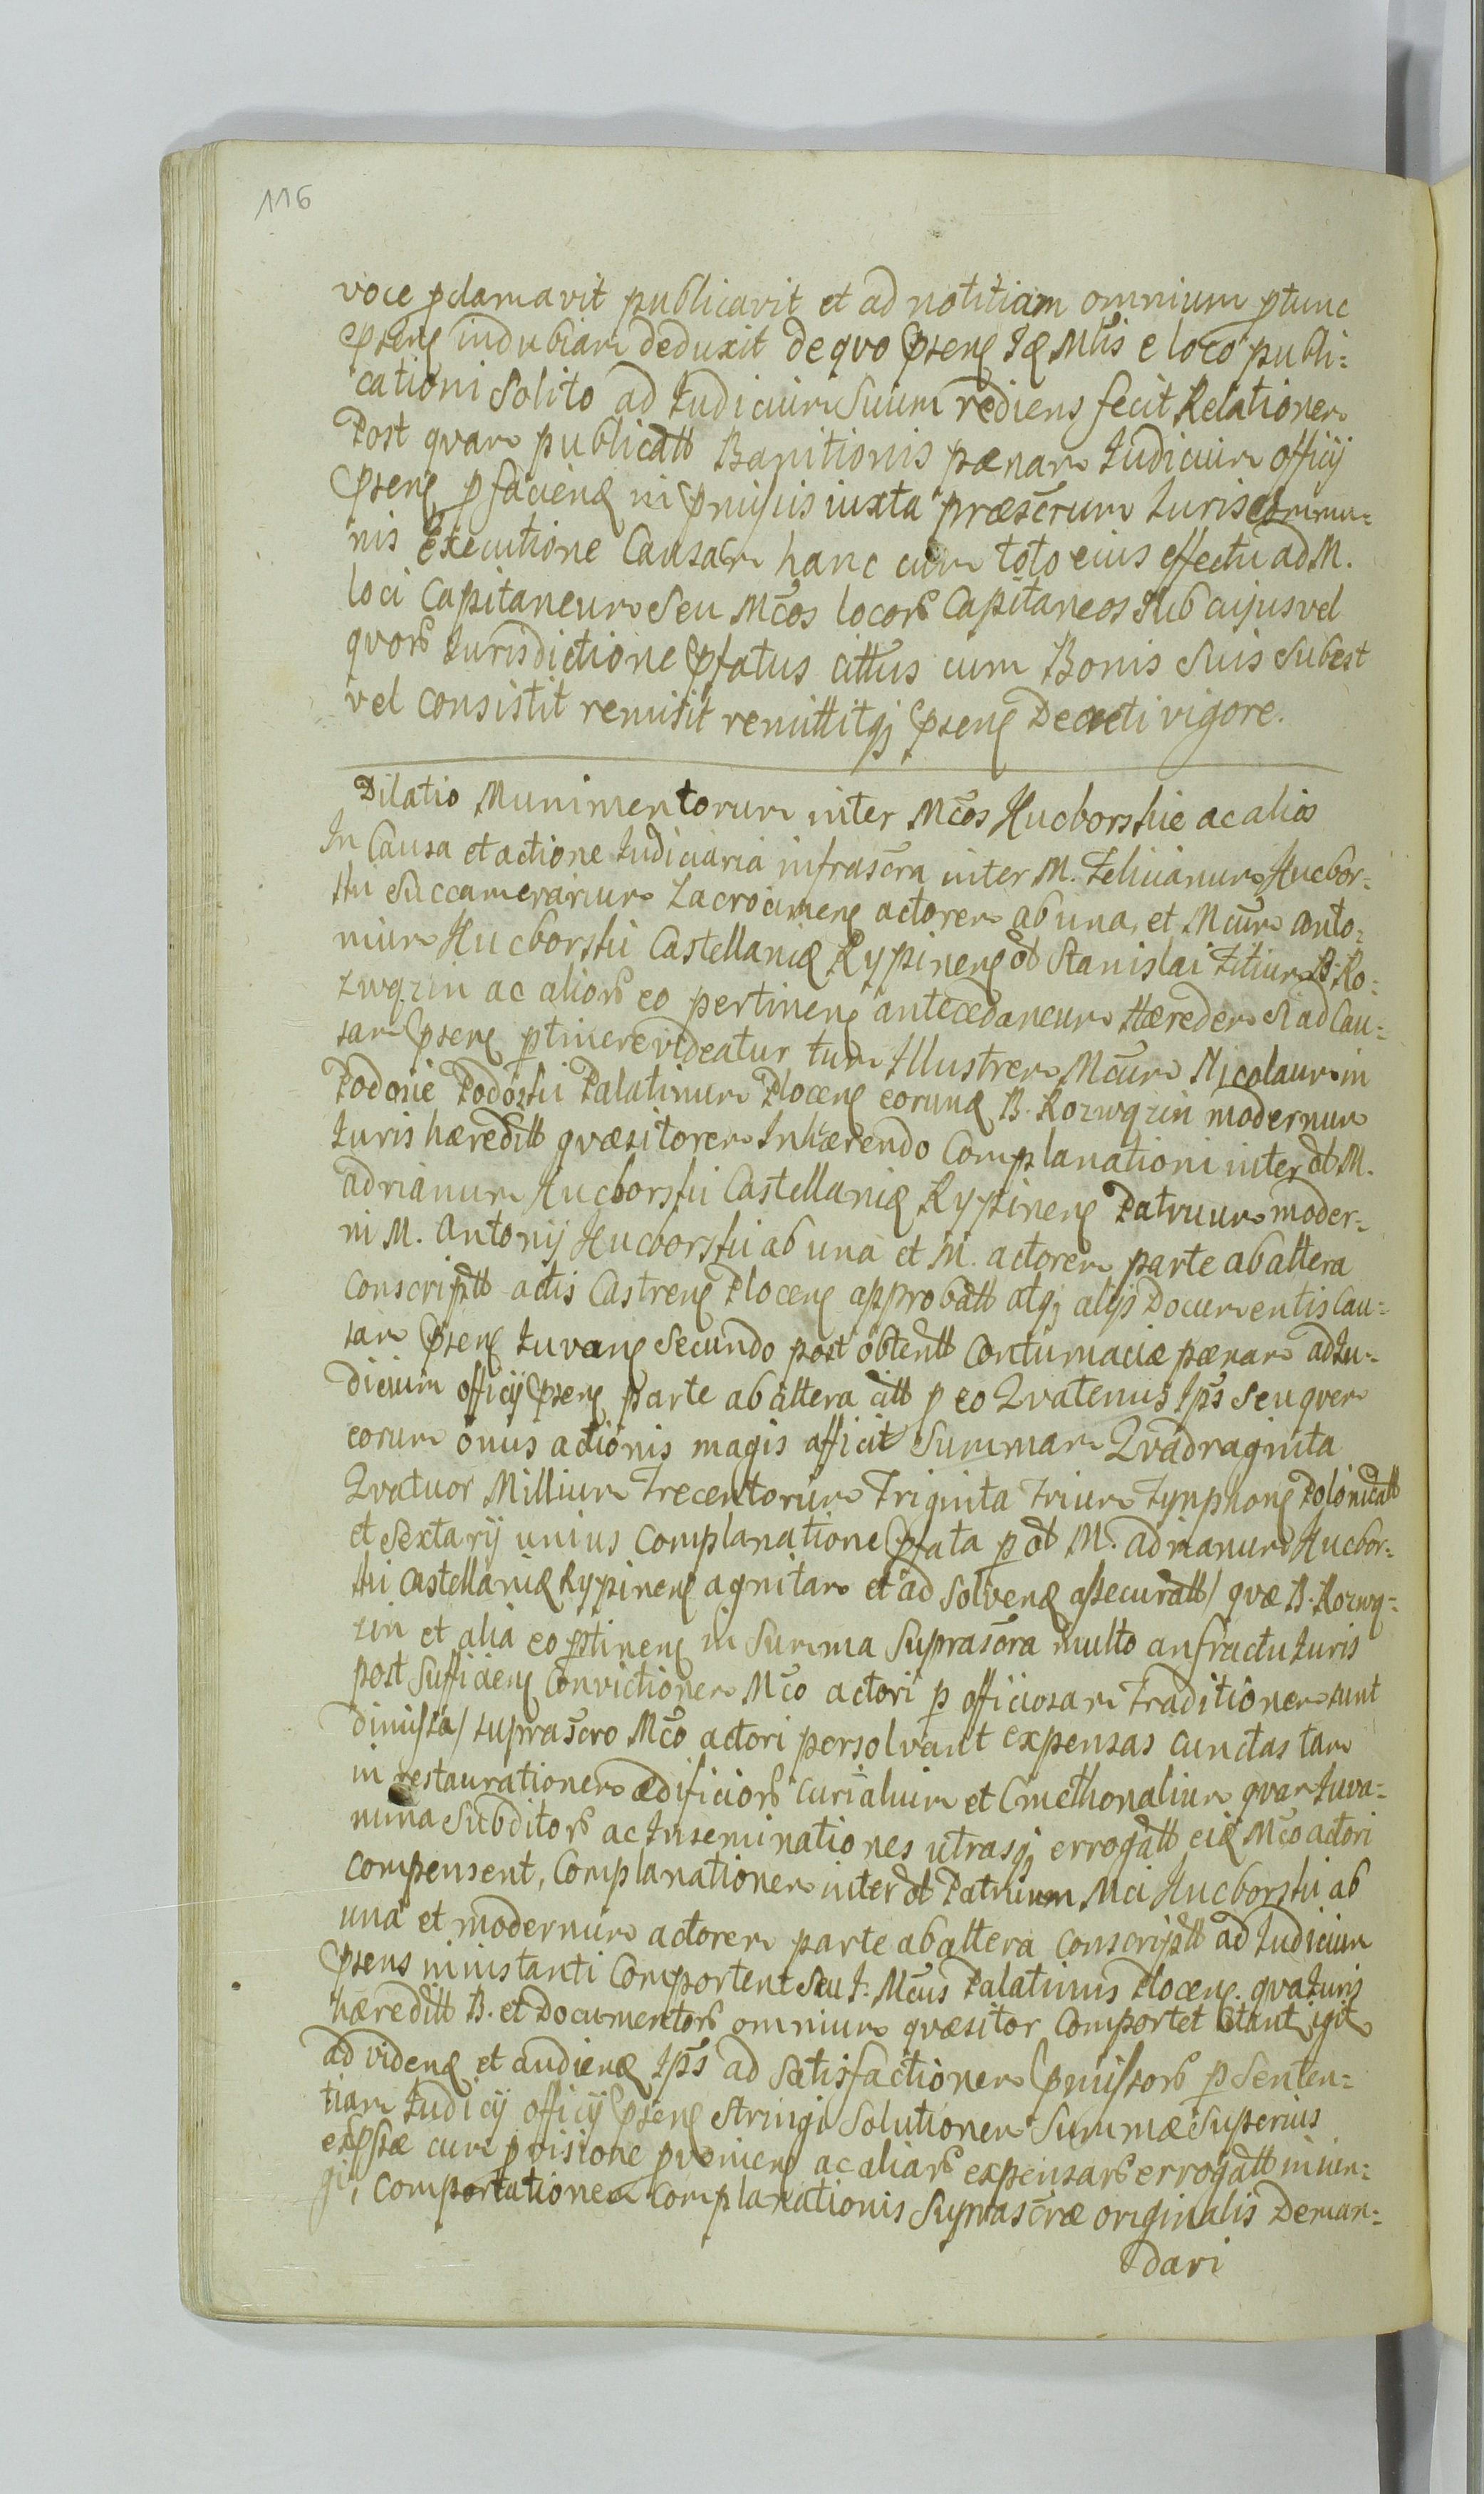 116
voce pclamavit publicavit et ad notitiam omnium ptunc
psens indubiam deduxit de qvo psens Idē Mlis e loco publi=
cationi Solito ad Judicium Suum rediens fecit Relationem
Post qvam publicatt Banitionis pœnam Judicium officij
psens p faciend in pmissis iuxta præscrum Juris commu=
nis Executione Causam hanc cum toto eius effectu ad M.
loci Capitaneum Seu Mcos locorū Capitaneos Sub cujus vel
qvorū Jurisdictione pfatus cittus cum Bonis Suis Subest
vel Consistit remisit remittitqj psens Decreti vigore.
Dilatio Munimentorum inter Mcos Kucborskie ac alios
In Causa et actione Judiciaria infrascra inter M. Felicianum Kucbor=
ski Succamerarium Zacrocimens actorem ab una, et Mcum Anto=
nium Kucborski Castellanid Rypinens ol Stanislai Filium B. Ro=
zwqzin ac aliorū eo pertinens antecedaneum Hæredem Si ad Cau=
sam psens ptinere videatur tum Illustrem Mcum Nicolaum in
Podosie Podoski Palatinum Plocens eorund B. Rozwqzin modernum
Juris hæreditt qvæsitorem Inhærendo Complanationi inter ol M.
Adrianum Kucborski Castellanid Rypinens Patruum moder=
ni M. Antonij Kucborski ab una et M. actorem parte ab altera
Conscriptt actis Castrens Plocens approbatt atqj alijs Documentis Cau=
sam psens Juvans Secundo post obtentt Contumaciæ pœnam ad Ju=
dicium officij psens parte ab altera citt p eo Qvatenus Ips Seu qvem
eorum onus actionis magis afficit Summam Qvadraginta
Qvatuor Millium Trecentorum Triginta Trium Tynphons Polonicatt
et Sextarij unius Complanatione pfata p ol M. Adrianum Kucbor=
ski Castellanid Rypinens agnitam et ad Solvend assecuratt / qvæ B. Rozwq=
zin et alia eo ptinens in Summa Suprascra multo anfractu Juris
post Sufficiens Convictionem Mco actori p officiosam Traditionem sunt
dimissa / suprascro Mco actori persolvant expensas cunctas tam
in restaurationem ædificiorū curialium et Cmethonalium qvam Juva=
mina Subditorū ac Inseminationes utrasqj errogatt eid Mco actori
compensent, Complanationem inter ol Patruum Mci Kucborski ab
una et modernum actorem parte ab altera Conscriptt ad Judicium
psens in instanti Comportent Seu I. Mcus Palatinus Plocens. qva Juris
hæreditt B. et Documentorū omnium qvæsitor Comportet Citant igit
ad vidend et audiend Ips ad Satisfactionem pmissorū p Senten=
tiam Judicij officij psens Stringi Solutionem Summæ Superius
expssæ cum pvisione pvoniens ac aliarū expensarū errogatt iniun=
gi, Comportationem Complanationis Suprascræ originalis Deman=
dari